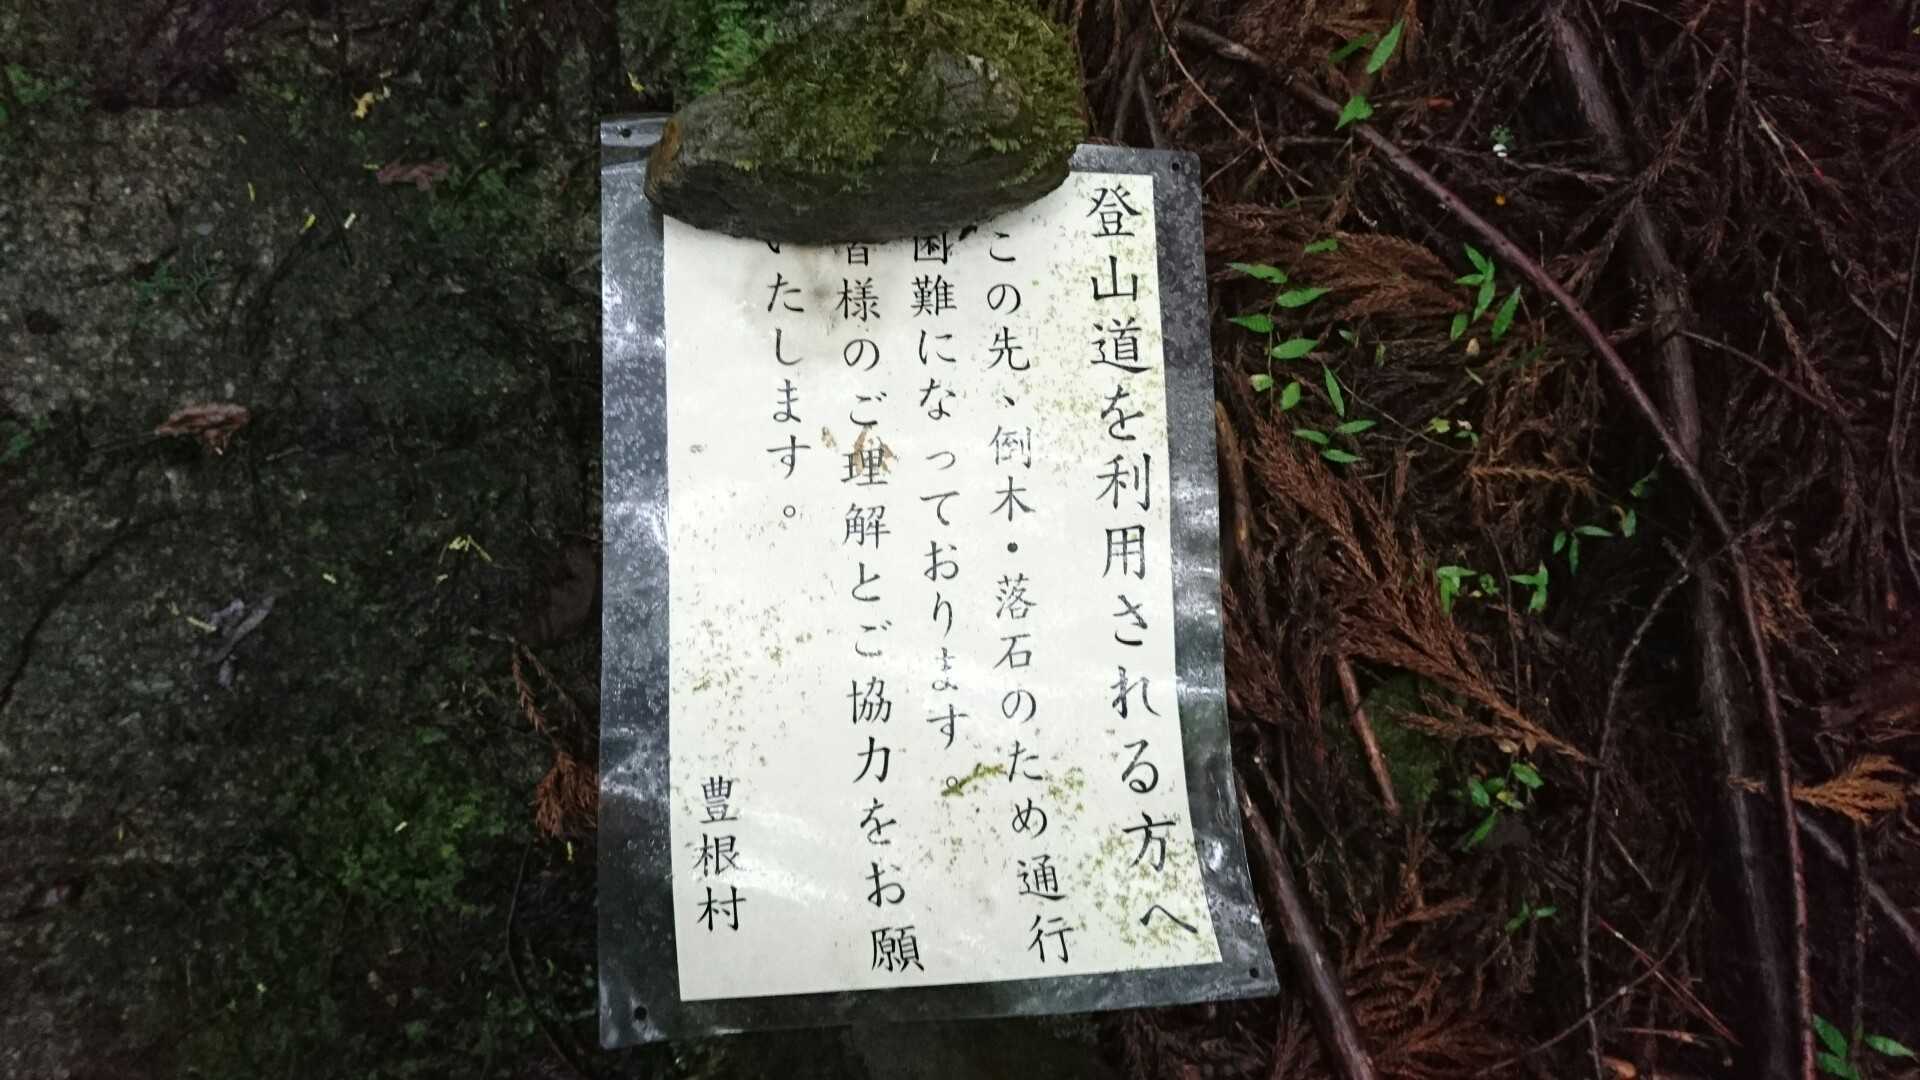 登山道を利用される方へ
この先、倒木・落石のため通行
困難になっております。
皆様のご理解とご協力をお願
いたします。
豊根村